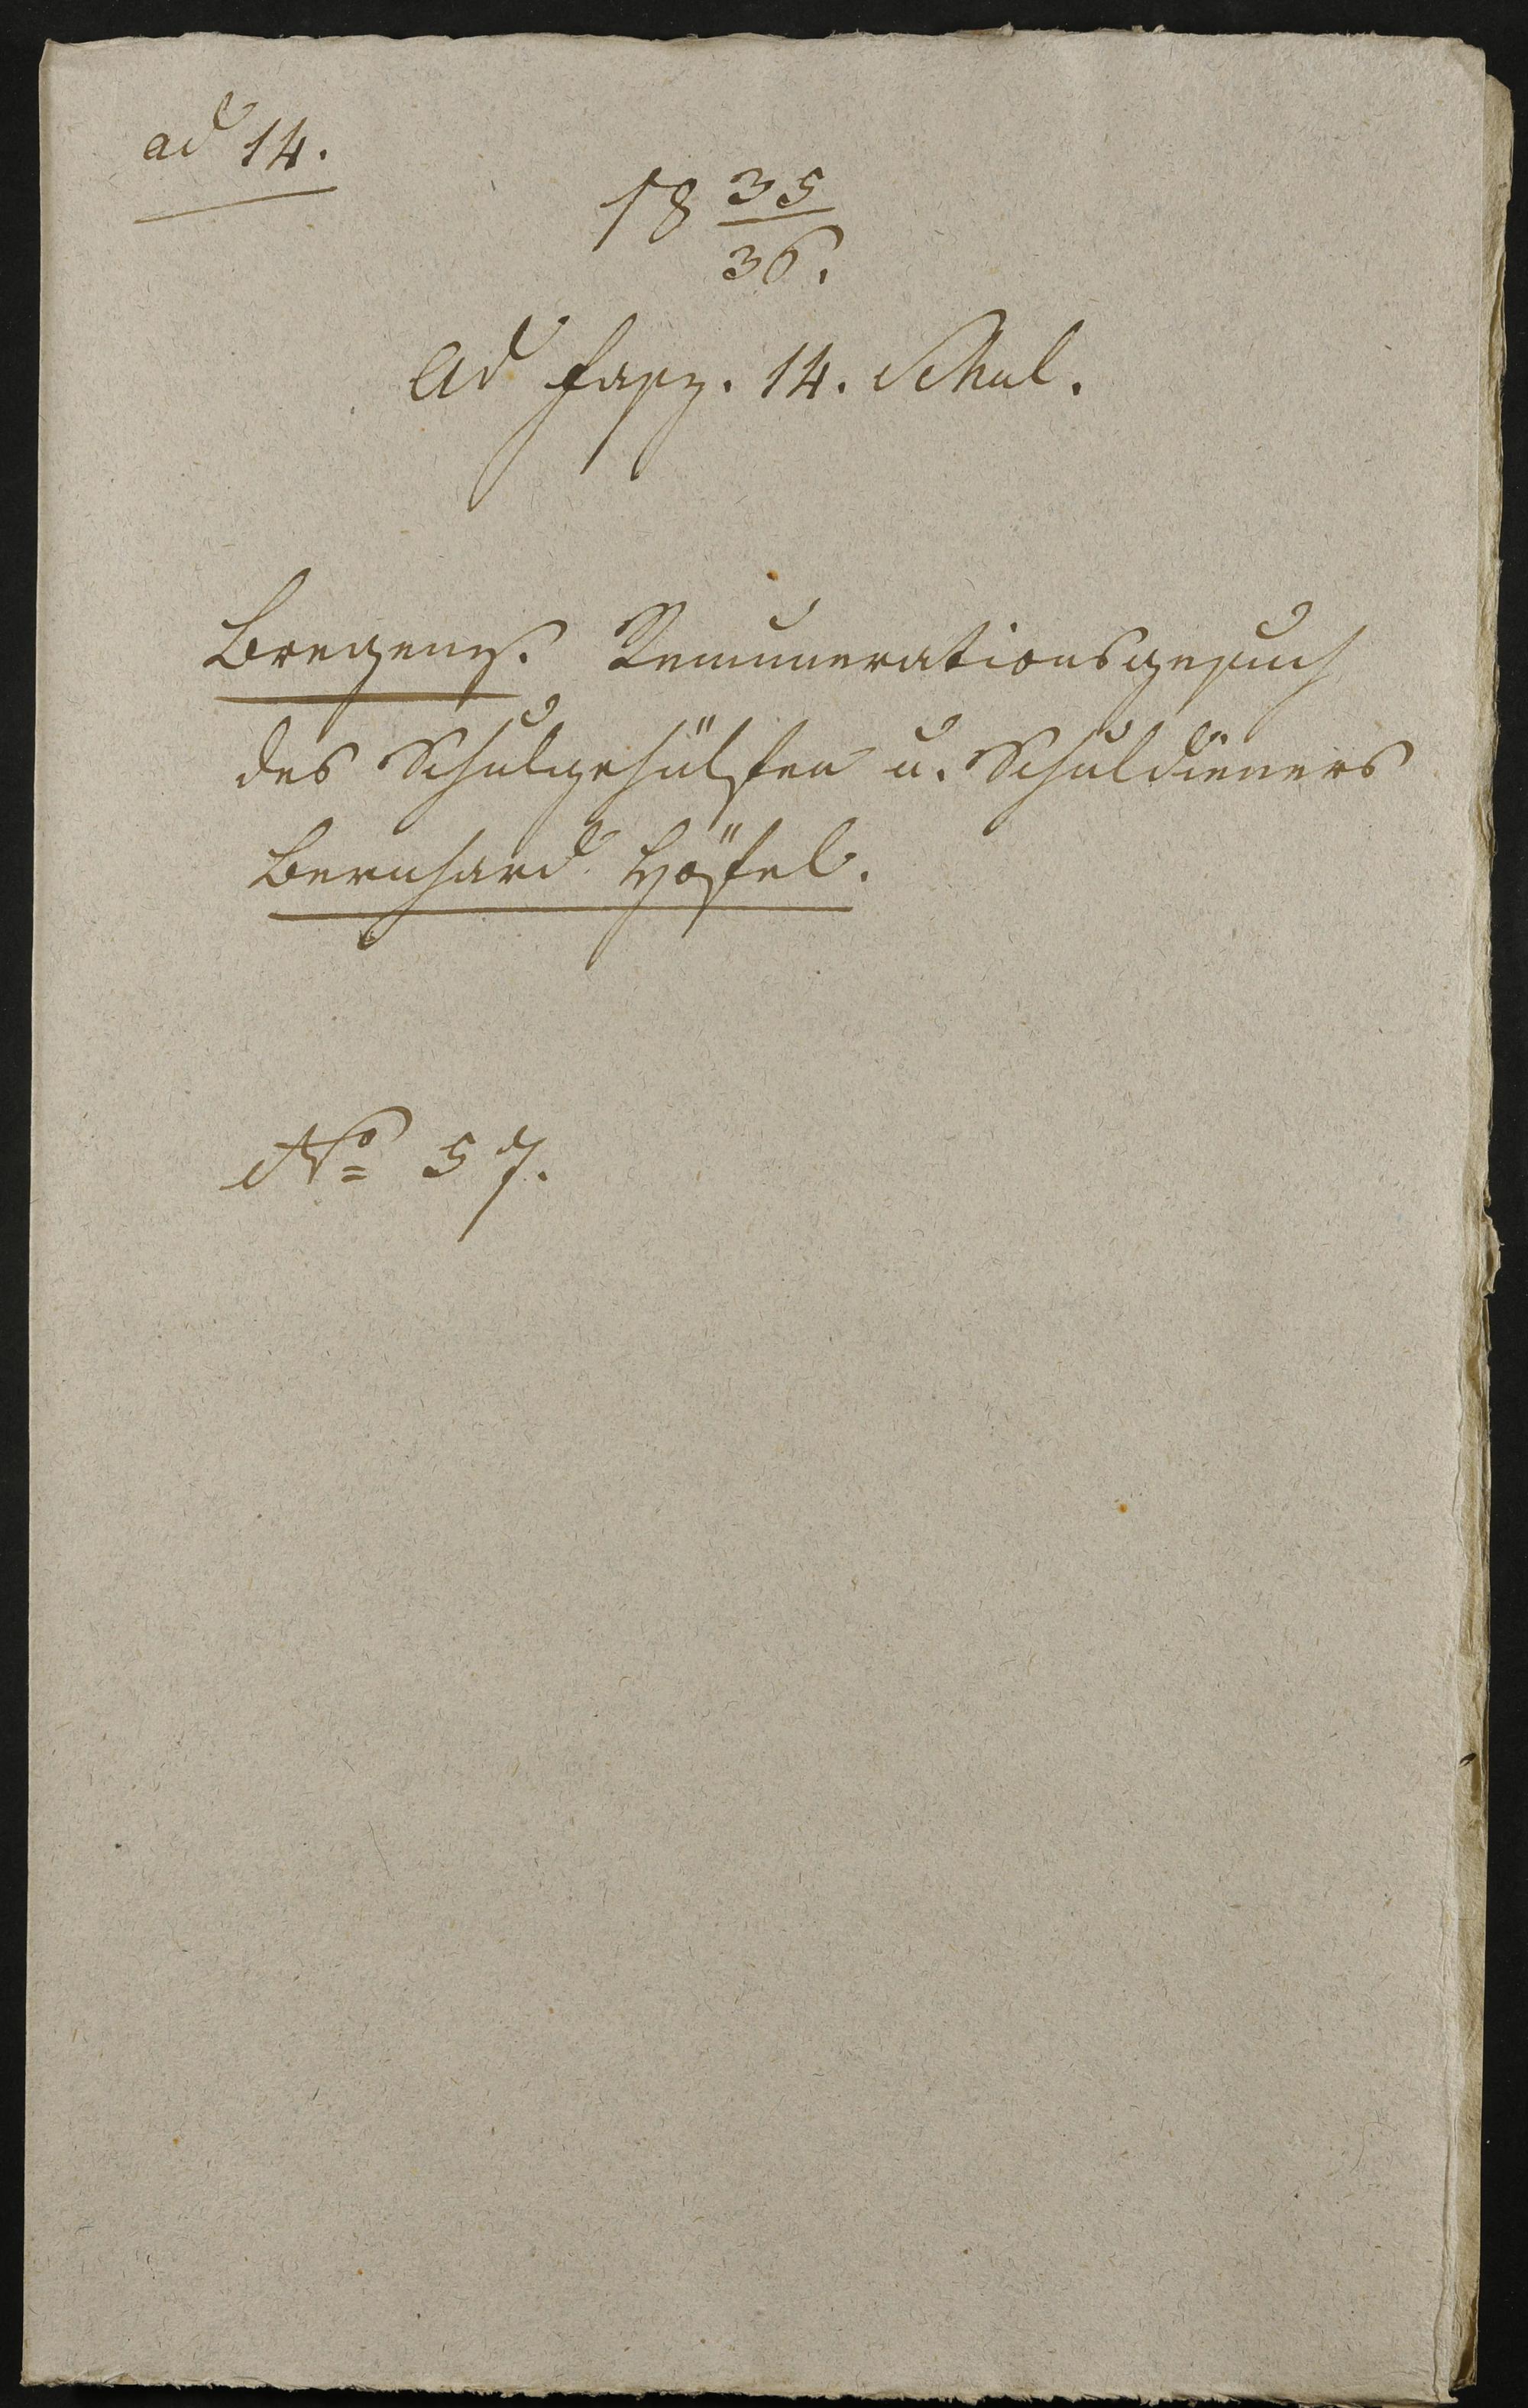 ad 14.
18 35/36.
Ad fasz. 14. Schul.
Bregenz. Remunerationsgesuch
des Schulgehülfen u. Schuldieners
Bernhard Höfel.
No 57.